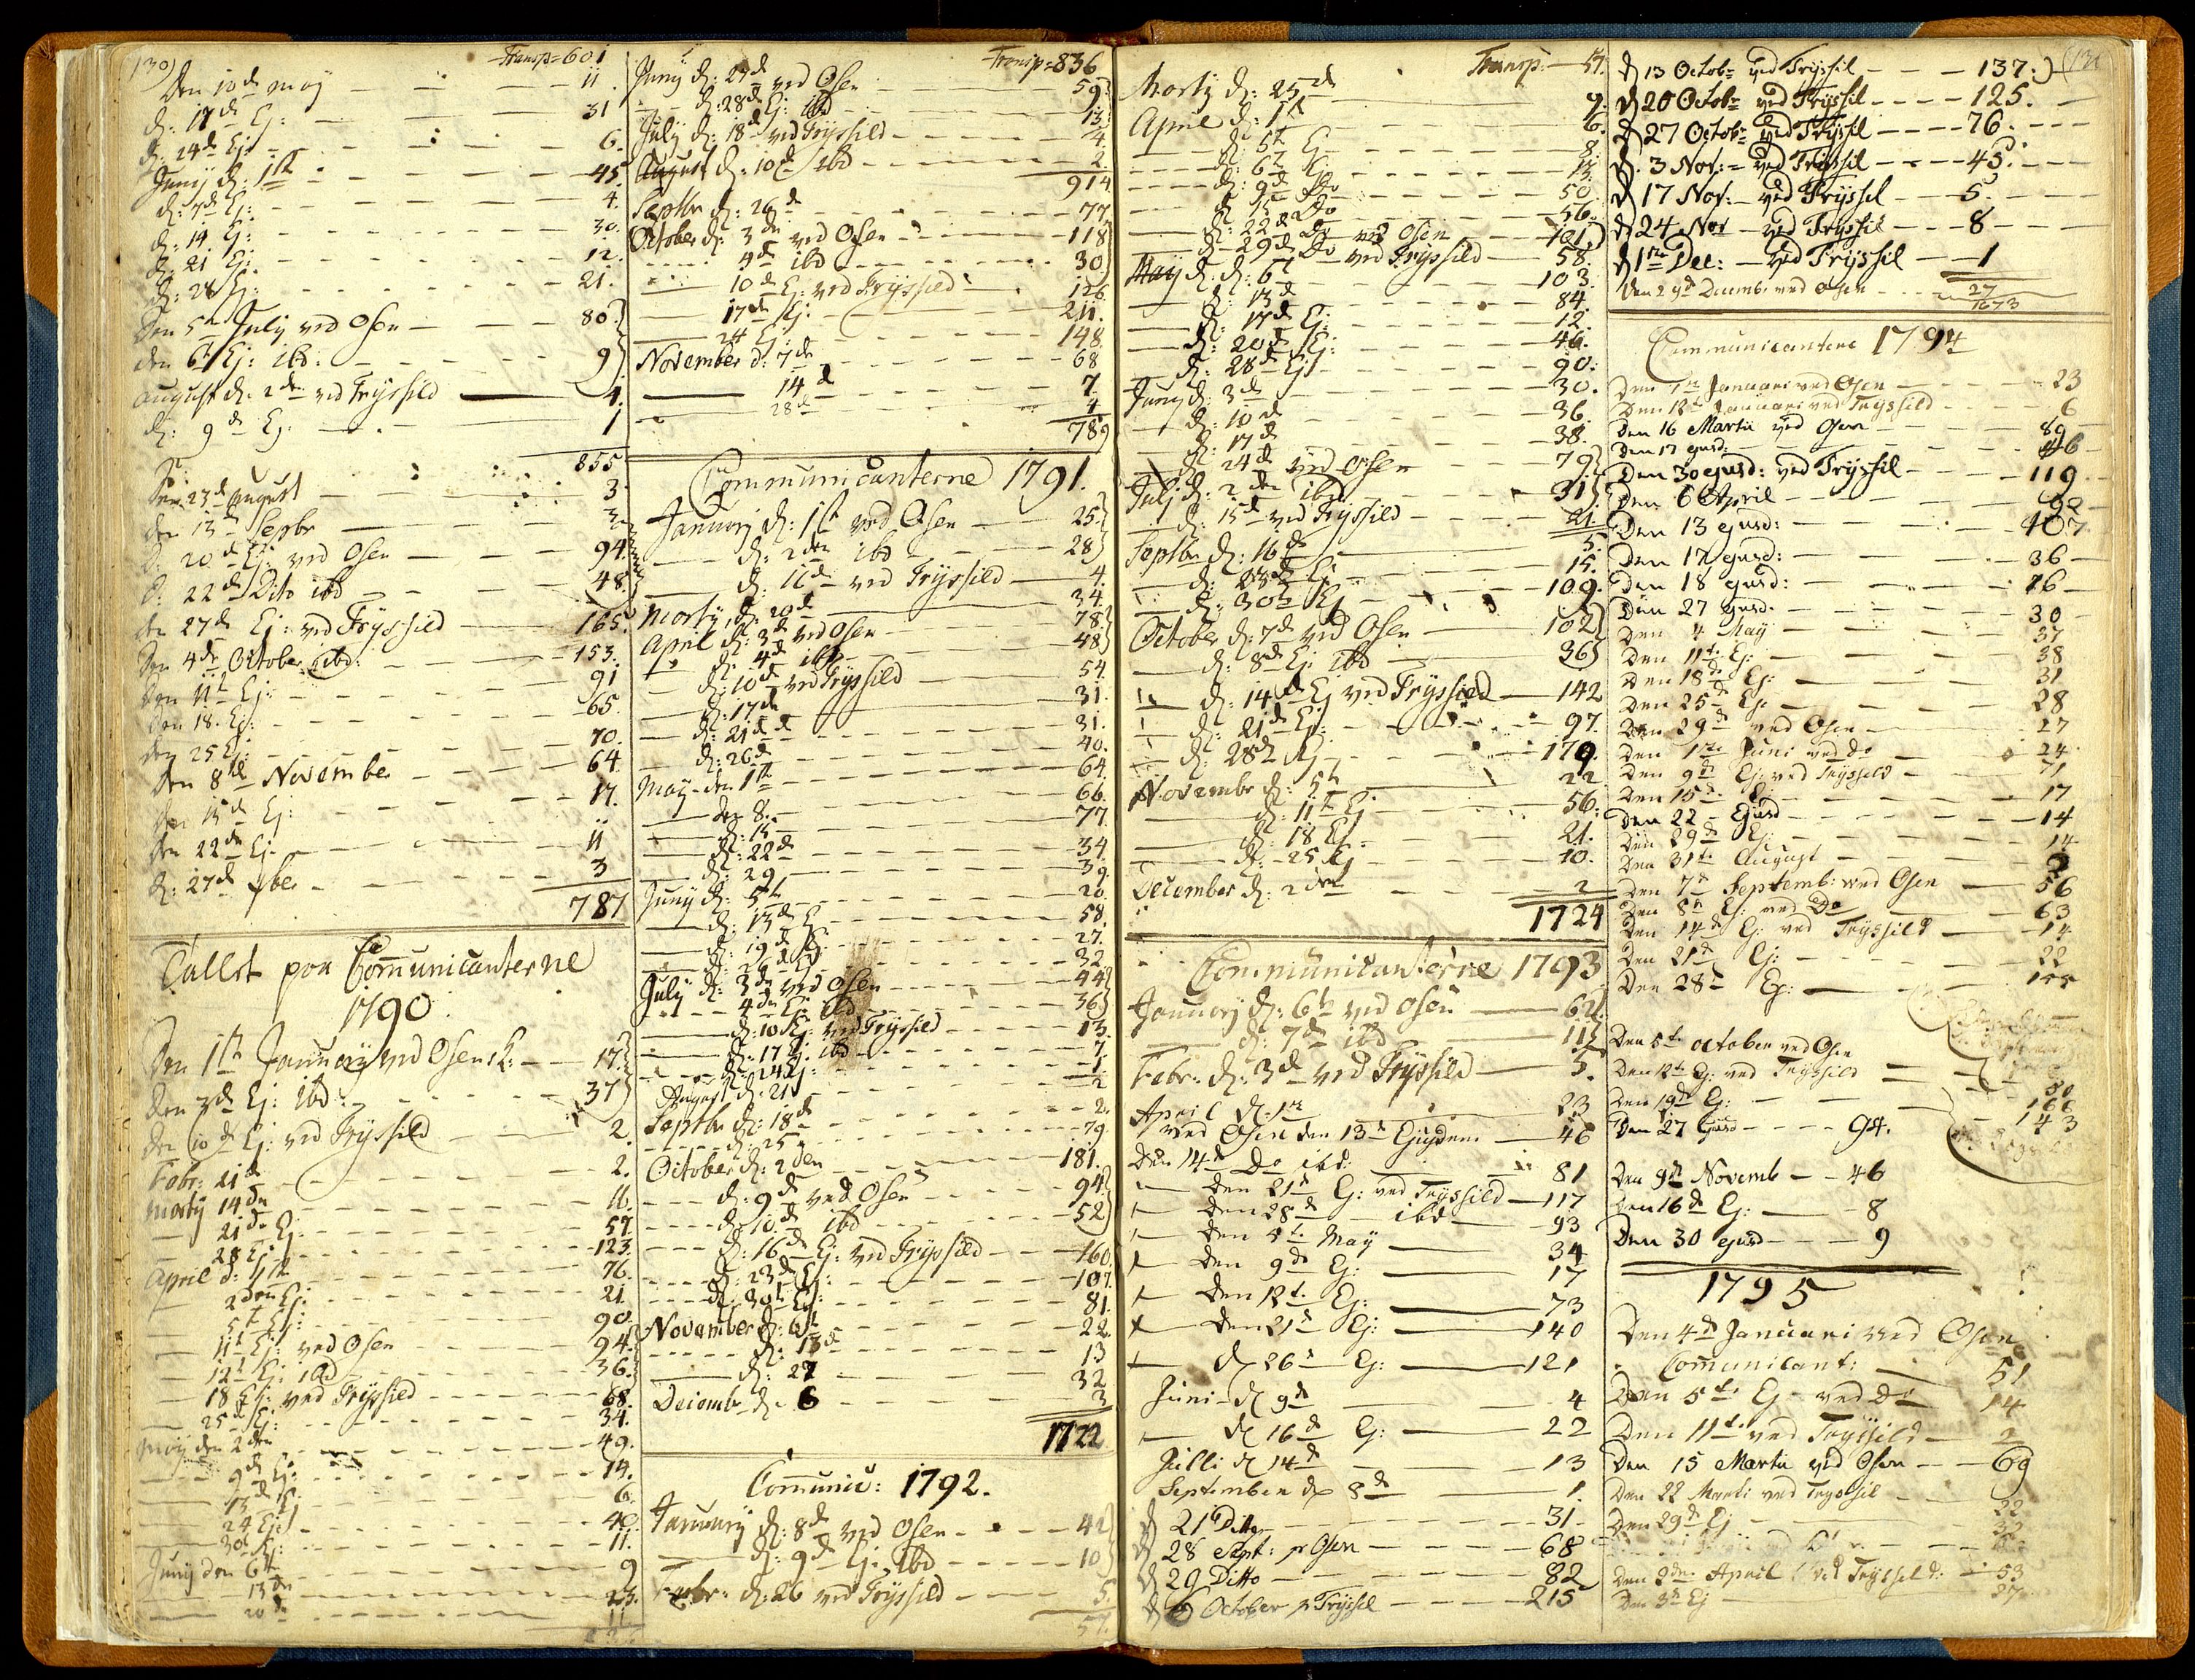 130)
Transp = 601
Den 10de may 11
d: 17d Ej: 31
d: 24d Ej: 6.
Junij d: 1st 45.
d: 7d Ej: 4.
d: 14 Ej: 30.
d: 21 Ej: 12.
d: 28 Ej: 21.
Den 5te July ved Osen 80.
den 6t Ej: ibd: 9
august d: 2den ved Tryssild 4.
d: 9de Ej: 1
855
Den 23d August 3.
den 13d Sepbr 3.
D: 20d Ej: ved Osen 94.
d: 22d Dito ibd 48.
den 27d Ej: ved Tryssild 165.
den 4de October ibd: 153.
den 11t Ej: 91
den 18. Ej: 65.
den 25 Ej: 70.
Den 8de November 64.
den 15d Ej: 17.
den 22de Ej. 11
d: 27d 3
787
Tallet paa Communicanterne
1790
Den 1st Januarij ved Osens K: 17.
den 3d Ej: ibd: 37
den 10d Ej: ved Tryssild 2.
Febr: 21de 2.
Martij 14de 16.
21de Ej: 57.
28 Ej: 123.
April d: 1st 76.
2den Ej: 21.
5t Ej: 90.
11t Ej: ved Osen 94.
12t Ej: ibd 36.
18 Ej: ved Tryssild 68.
25de Ej: 34.
May den 2den 49.
9de Ej: 14.
13de Ej: 6.
24 Ej: 40.
30t Ej: 11.
Junij den 6t 9
13de 23.
20de 11
Transp = 836
Junij d: 27d ved Osen 59
d: 28d Ej: ibd 13.
July d: 18d ved Tryssild 4.
August d: 10d ibd 2.
914
Septbr d: 26d 77.
October d: 3de ved Osen 118
4de ibd 30
10d Ej: ved Tryssild 126.
17de Ej: 211.
24 Ej: 148.
November d: 7de 68
14d 7.
28de 4
789
Communicanterne 1791.
Januarij d: 1st ved Osen 25.
d: 2den ibd 28
d: 16d ved Tryssild 4.
Martij, d: 20d 34.
April d: 3d ved Osen 78.
d: 4d ibd 48
d: 10d ved Tryssild 54.
d: 17de 31.
d: 21de 31.
d: 26d 40.
May den 1st 64.
den 8. 66.
d: 15 77.
d: 22d 34.
d: 29 39.
Junij d: 5t 20.
d: 13d Ej 58.
d: 19d Ej: 27.
d: 26 Ej 32
July d: 3de ved Osen 44
4de Ej: ibd 36
d: 10 Ej: ved Tryssild 13.
d: 17 Ej: ibd 7.
d: 24 Ej: 1.
August d: 21 2
Septbr d: 18d 2.
d: 25 79.
October d: 2den 181.
d: 9d ved Osen 94.
d: 10d ibd 52
d: 16d Ej: ved Tryssild 160.
d: 23d Ej: 107.
d: 30t Ej: 81.
November d: 6t 22.
d: 13d 13
d: 27 32
Decemb d: 6 3
1722
Communic: 1792.
Januarij d: 8d ved Osen 42
d: 9d Ej: ibd 10
Febr: d: 26 ved Tryssild 5.
57.
Transp: 57.
Martij d: 25d 9.
April d: 1st 16.
d: 5t Ej 8.
d: 6t Ej: 13.
d: 9d Do 50.
d: 15 Do 56.
d: 22d Do ved Osen 101
d: 29d Do ved Tryssild 58.
May d: 6t 103.
d: 13d 84.
d: 17d Ej: 12.
d: 20d Ej: 46.
d: 28d Ej 90.
Junij d: 3d 30.
d: 10d 36.
d: 17d 38.
d: 24d ved Osen 79
Julj d: 2den ibd 31
d: 15d ved Tryssild 21.
Septbr d: 16d 5.
d: 23d Ej 15.
d: 30te Ej 109.
October d: 7d ved Osen 102
d: 8d Ej ibd 36
d: 14d Ej ved Tryssild 142
d: 21d Ej: 97.
d: 28d Ej 179.
Novembr d: 5t 22
d: 11t Ej. 56.
d: 18 Ej: 21.
d: 25 Ej 10.
December d: 2den 2
1724
Communicanterne 1793
Januarij d: 6t ved Osen 62
d: 7d ibd 11
Febr: d: 3d ved Tryssild 5.
April d. 1st 23
ved Osen den 13d Ejusdem 46
Den 14d Do ibd: 81
den 21d Ej: ved Tryssild 117
den 28d ibd 93
den 5t May 34
den 9d Ej: 17
den 12t Ej: 73
den 21d Ej: 140
d 26d Ej: 121
Juni d 9d 4
d 16d Ej: 22
Julli d 14d 13
September d 8d 1.
d 21 Ditto 31
d 28 Sept: pr Osen 68
d 29 Ditto 82
d 6 October pr Tryssil 215
(131
d 13 Octobr ved Tryssil 137.
d 20 Octobr ved Tryssil 125.
d 27 Octobr ved Tryssil 76.
d. 3 Nov: ved Tryssil 45.
d 17 Nov: ved Tryssil 5
d 24 Nov ved Tryssil 8
d 1ste Dec: ved Tryssil 1
Den 29d Decemb: ved Osen 27
1673
Communicantene 1794
Den 1ste Januari ved Osen 23
Den 12t Januari ved Tryssild 6
Den 16 Martii ved Osen 89
Den 17 ejusd: 46
Den 30 ejusd: ved Tryssil 119
Den 6 April 92
Den 13 ejusd: 107
Den 17 ejusd: 36
Den 18 ejusd: 76
Den 27 ejusd. 30
Den 4 May 37
Den 11t. Ej: 38
Den 18d Ej: 31
Den 25d Ej: 28
Den 29d ved Osen 27
Den 1ste Juni ved do 24
Den 9d Ej: ved Tryssild 71
Den 15d Ej: 17
Den 22 Ejusd 14
Den 29d Ej: 14
Den 31t. August
Den 7d Septemb: ved Osen 56
Den 8d Ej: ved Do 63
Den 14d Ej: ved Tryssild 14
Den 21d Ej: 22
Den 28d Ej: 155
Den 5t. october ved Osen
Den 12t Ej: ved Tryssild
Den 19d Ej:
Den 27 Ejusd 94.
143
Den 9d Novemb 46
Den 16d Ej: 8
Den 30 ejusd 9
1795
Den 4d Januari ved Osen
Communicant: 51
Den 5t. Ej ved Do 14
Den 11t. ved Tryssild 2
Den 15 Martii ved Osen 69
Den 22 Marti ved Tryssil 22
Den 29d Ej
Den 2den April ved Tryssild: 53
Den 3d Ej 27